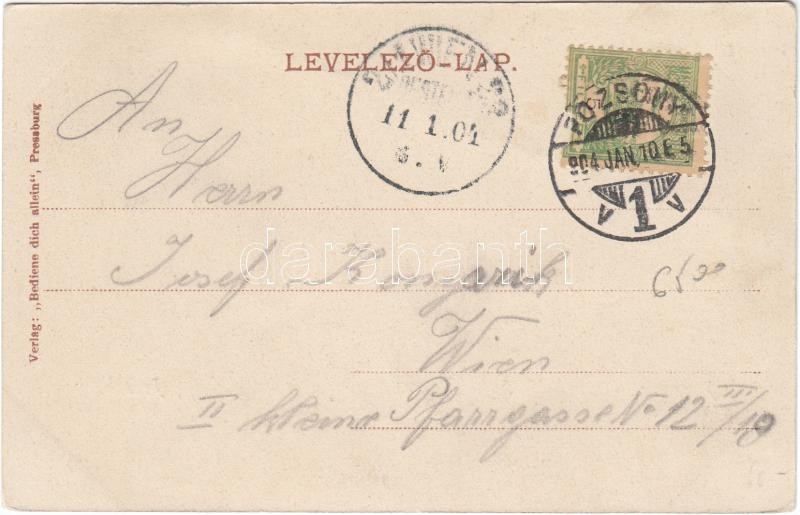 LEVELEZŐ–LAP.
11 1.04
6. V
POZSONY
904 JAN. 10 E. 5
V 1 A
An
Herrn
Josef
Wien
II kleine Pfarrgasse No 12 III/10
6500
Verlag: „Bediene dich allein“, Pressburg
darabanth